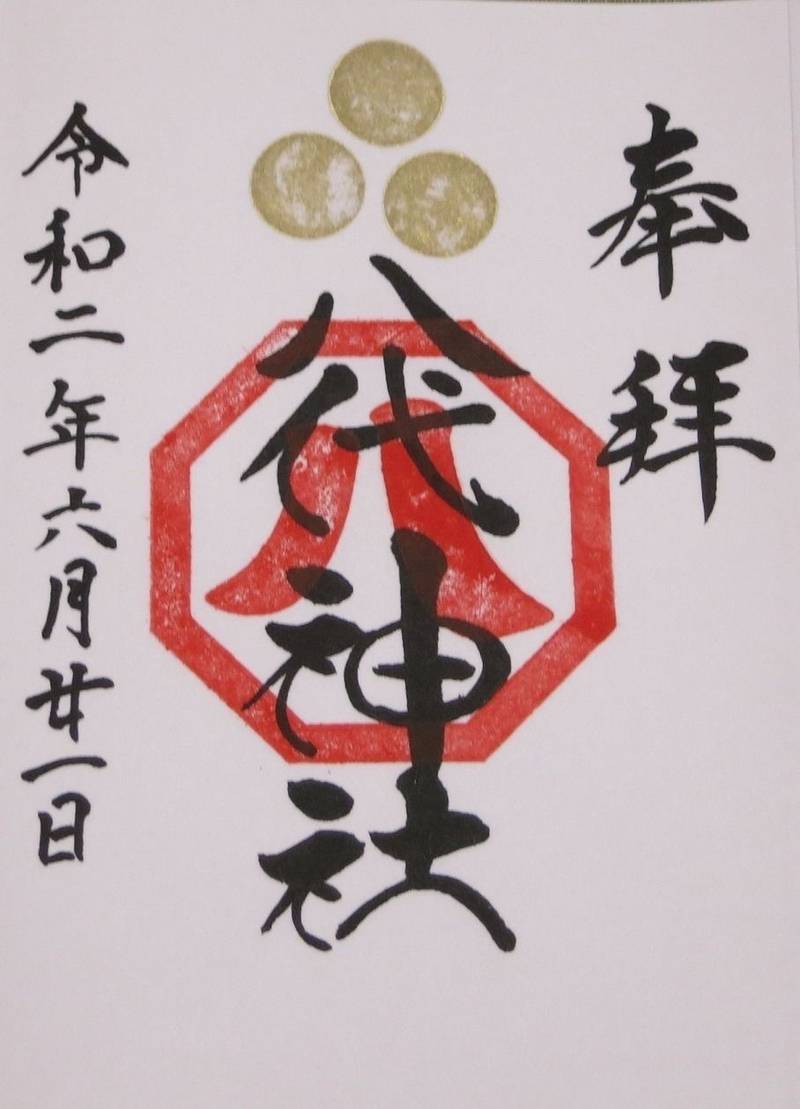 奉拝
八代神社
令和二年六月廿一日